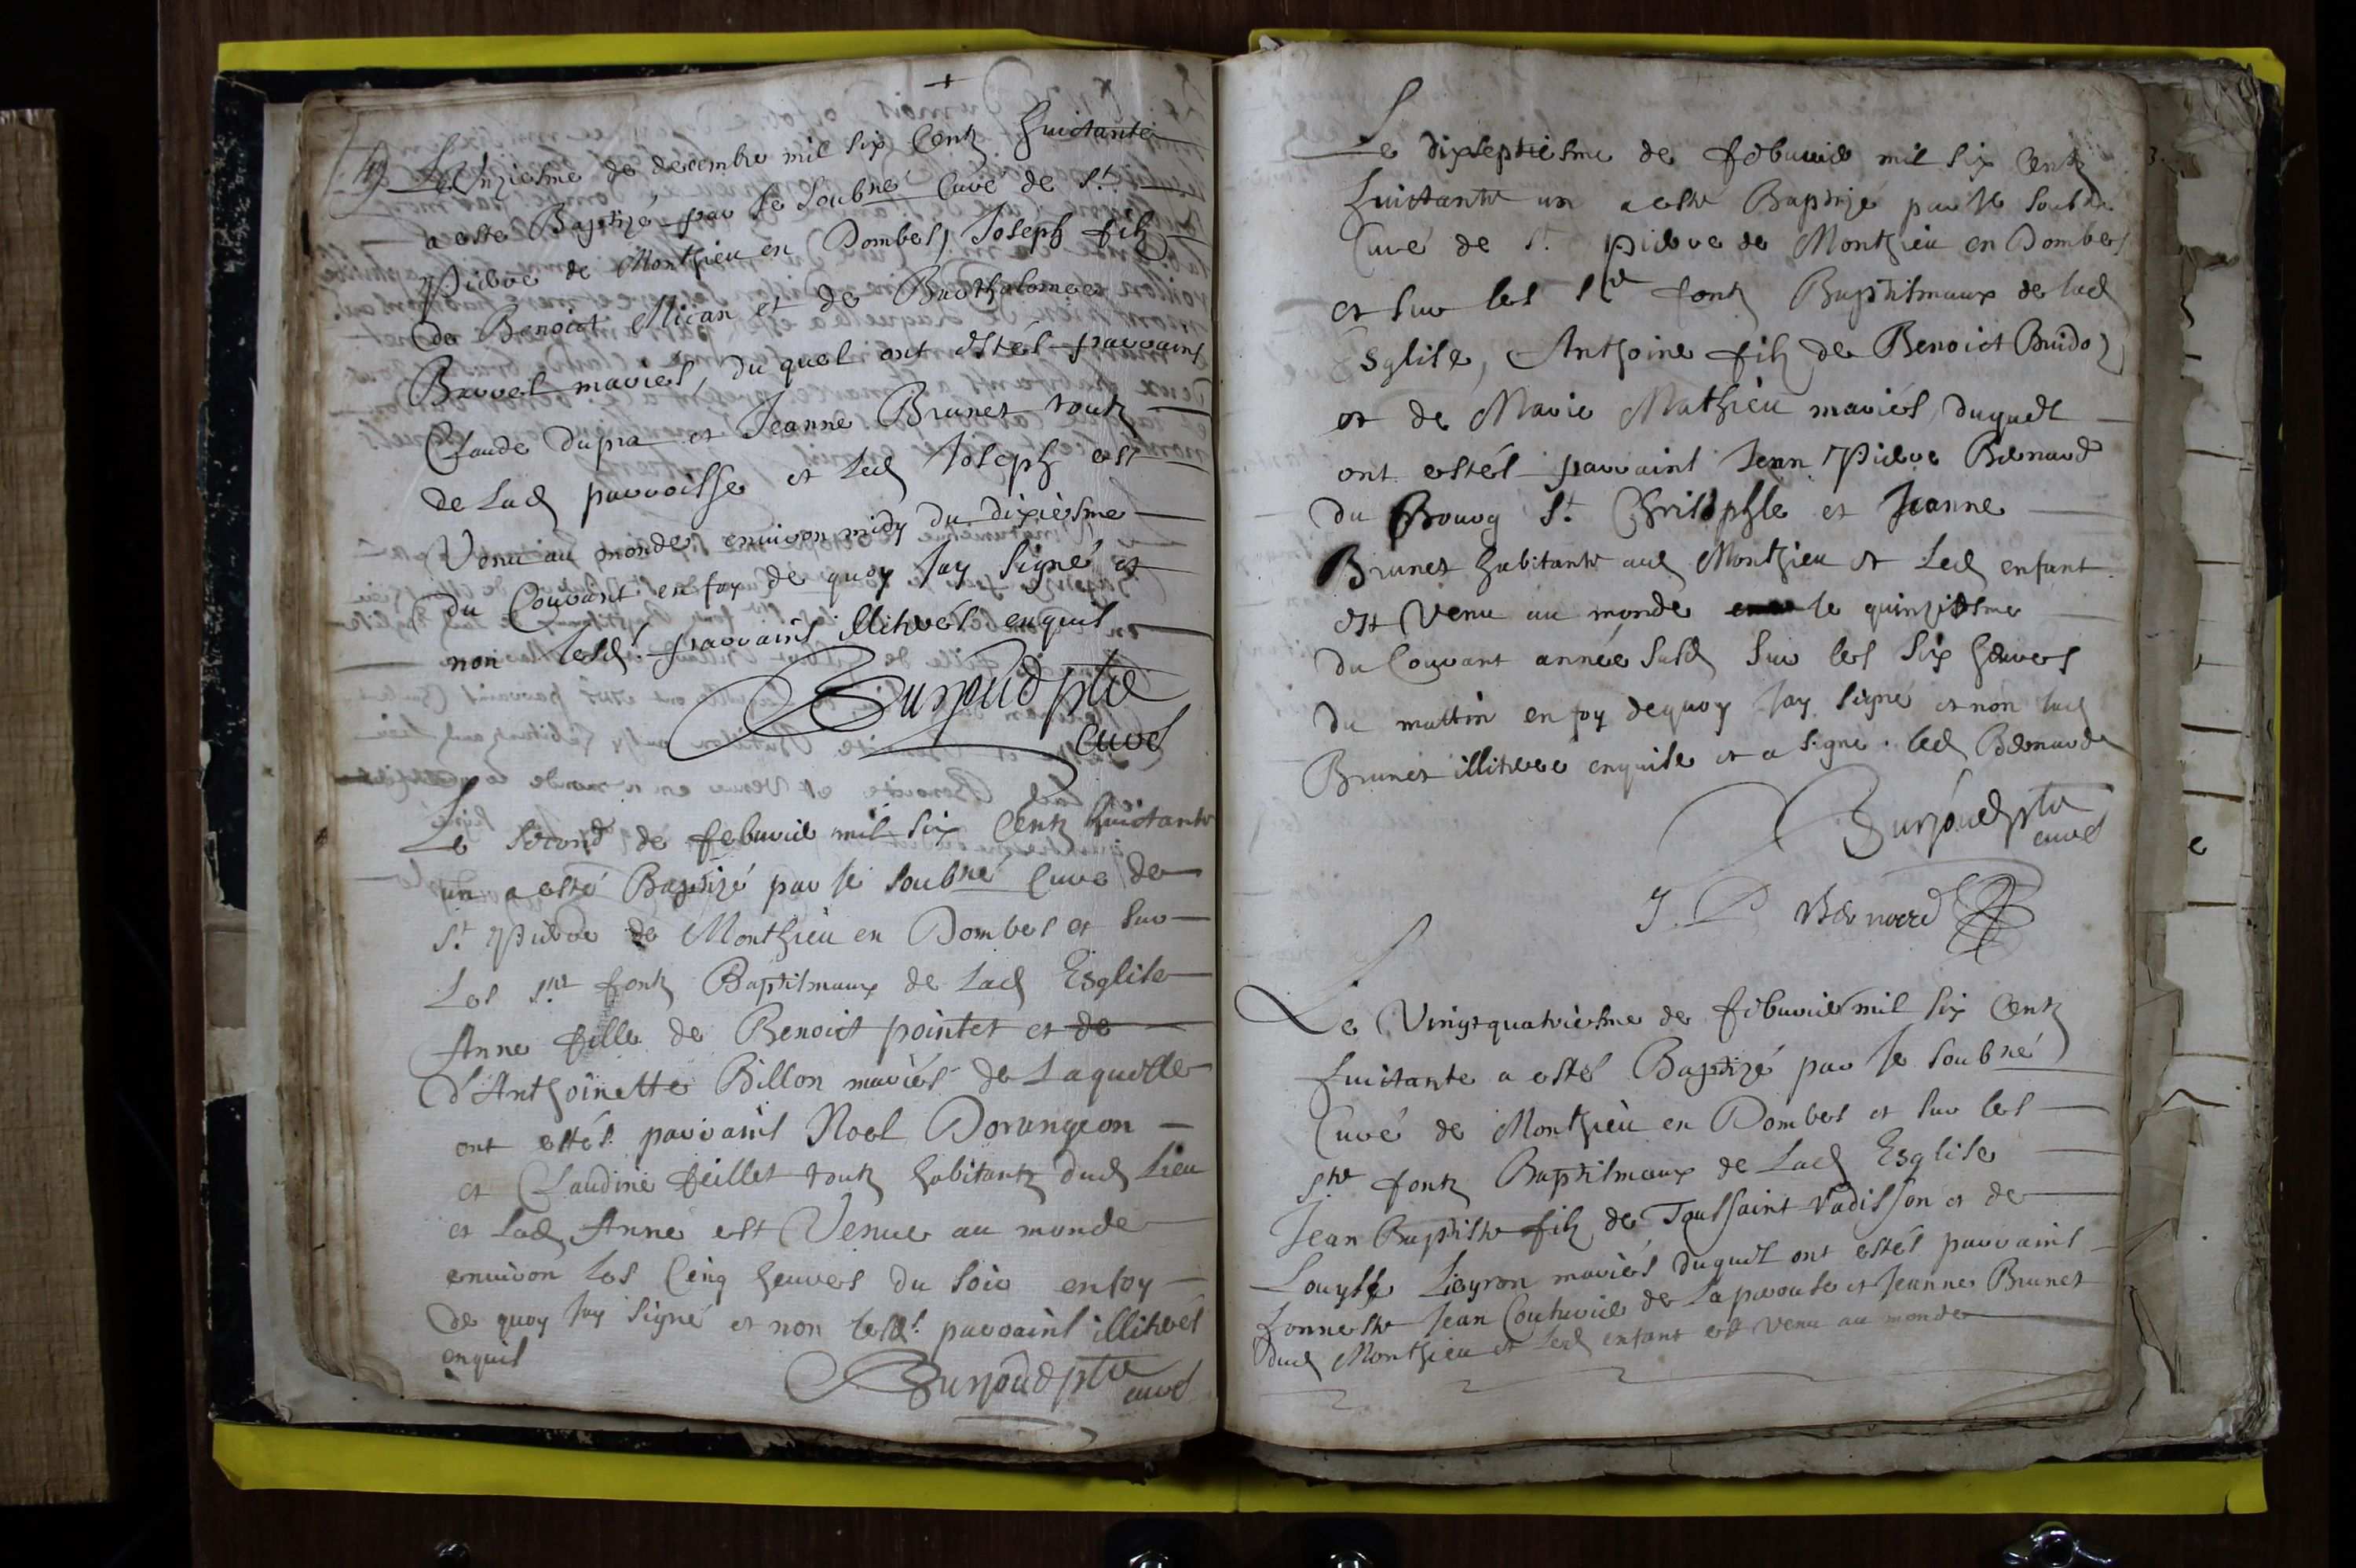 +
Le Unziesme de decembre mil six Centz huictante
a esté Baptizé par Je soubné Curé de St
Pierre de Monthieu en Dombes, Joseph filz
de Benoict Mican et de Barthelomee
Barvel mariés, du quel ont estés parrains
Claude Dupra et Jeanne Brunet toutz
de Lad parroisse et Led Joseph est
Venu au monde environ midy du dixiesme
du Courant en foy de quoy Jay signé et
non lesdt parrains illiterés enquis
Burjoud ptre
curé
Le second de febvrier mil six Centz huictante
un a esté Baptizé par Je soubné Curé de
St Pierre de Monthieu en Dombes et sur
Les stz fontz Baptismaux de Lad Esglise
Anne fille de Benoict pointet et de
d'Anthoinette Billon mariés de Laquelle
ont estés parrains Noel Dorangeon
et Claudine feillet toutz habitantz dud Lieu
et Lad Anne est Venue au monde
environ Les Cinq heures du soir en foy
de quoy Jay signé et non lesdt parrains illiterés
enquis
Burjoud ptre
curé
3.
Le dixseptiesme de febvrier mil six Centz
huictante un a esté Baptizé par Je soubné
Curé de St pierre de Monthieu en Dombes
et sur les stz fontz Baptismaux de lad
Esglise, Anthoine filz de Benoict Buidoz
et de Marie Mathieu mariés, duquel
ont estés parrains Jean Pierre Bernard
du Bourg St Christophle et Jeanne
Brunet habitante aud Monthieu et Led enfant
est Venu au monde le quinziesme
du Courant année susd sur les six heures
du mattin en foy dequoy Jay signé et non lad
Brunet illiteree enquise et a signé led Bernard
Burjoud ptre
curé
J. P Bernard
Le Vingtquatriesme de febvrier mil six Centz
huictante a estés Baptizé par Je soubné
Curé de Monthieu en Dombes et sur les
stz fontz Baptismaux de Lad Esglise
Jean Baptiste filz de Toussaint Vadisson et de
Louyse Lieyron mariés duquel ont estés parrains
honneste Jean Couturier de La peroute et Jeanne Brunet
dud Monthieu et Led enfant est venu au monde